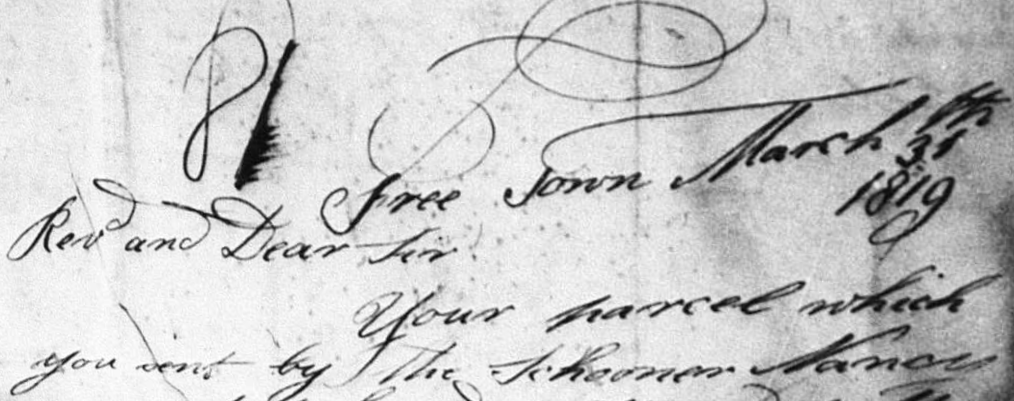 Free Town March 31th
1819
Revd and Dear Sir
Your parcel which
you sent by The Schooner Nancy